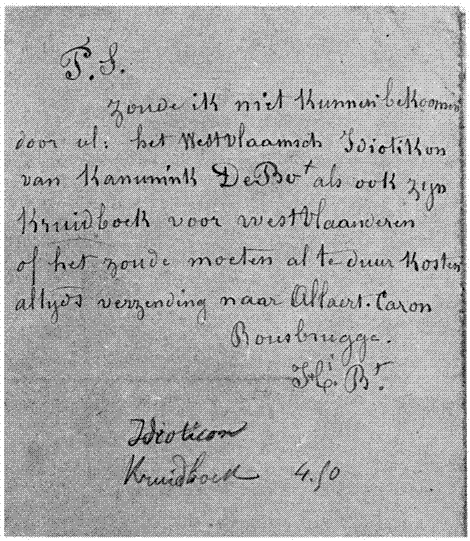 P.S.
Zoude ik niet kunnen bekoomen
door ul: het Westvlaamsch Idiotikon
van Kanunink DeBot als ook zijn
Kruidboek voor westvlaanderen
of het zoude moeten al te duur kosten
altyds verzending naar Allaert. Caron
Rousbrugge.
Hi. Bt.
Idioticon
Kruidboek 4.50